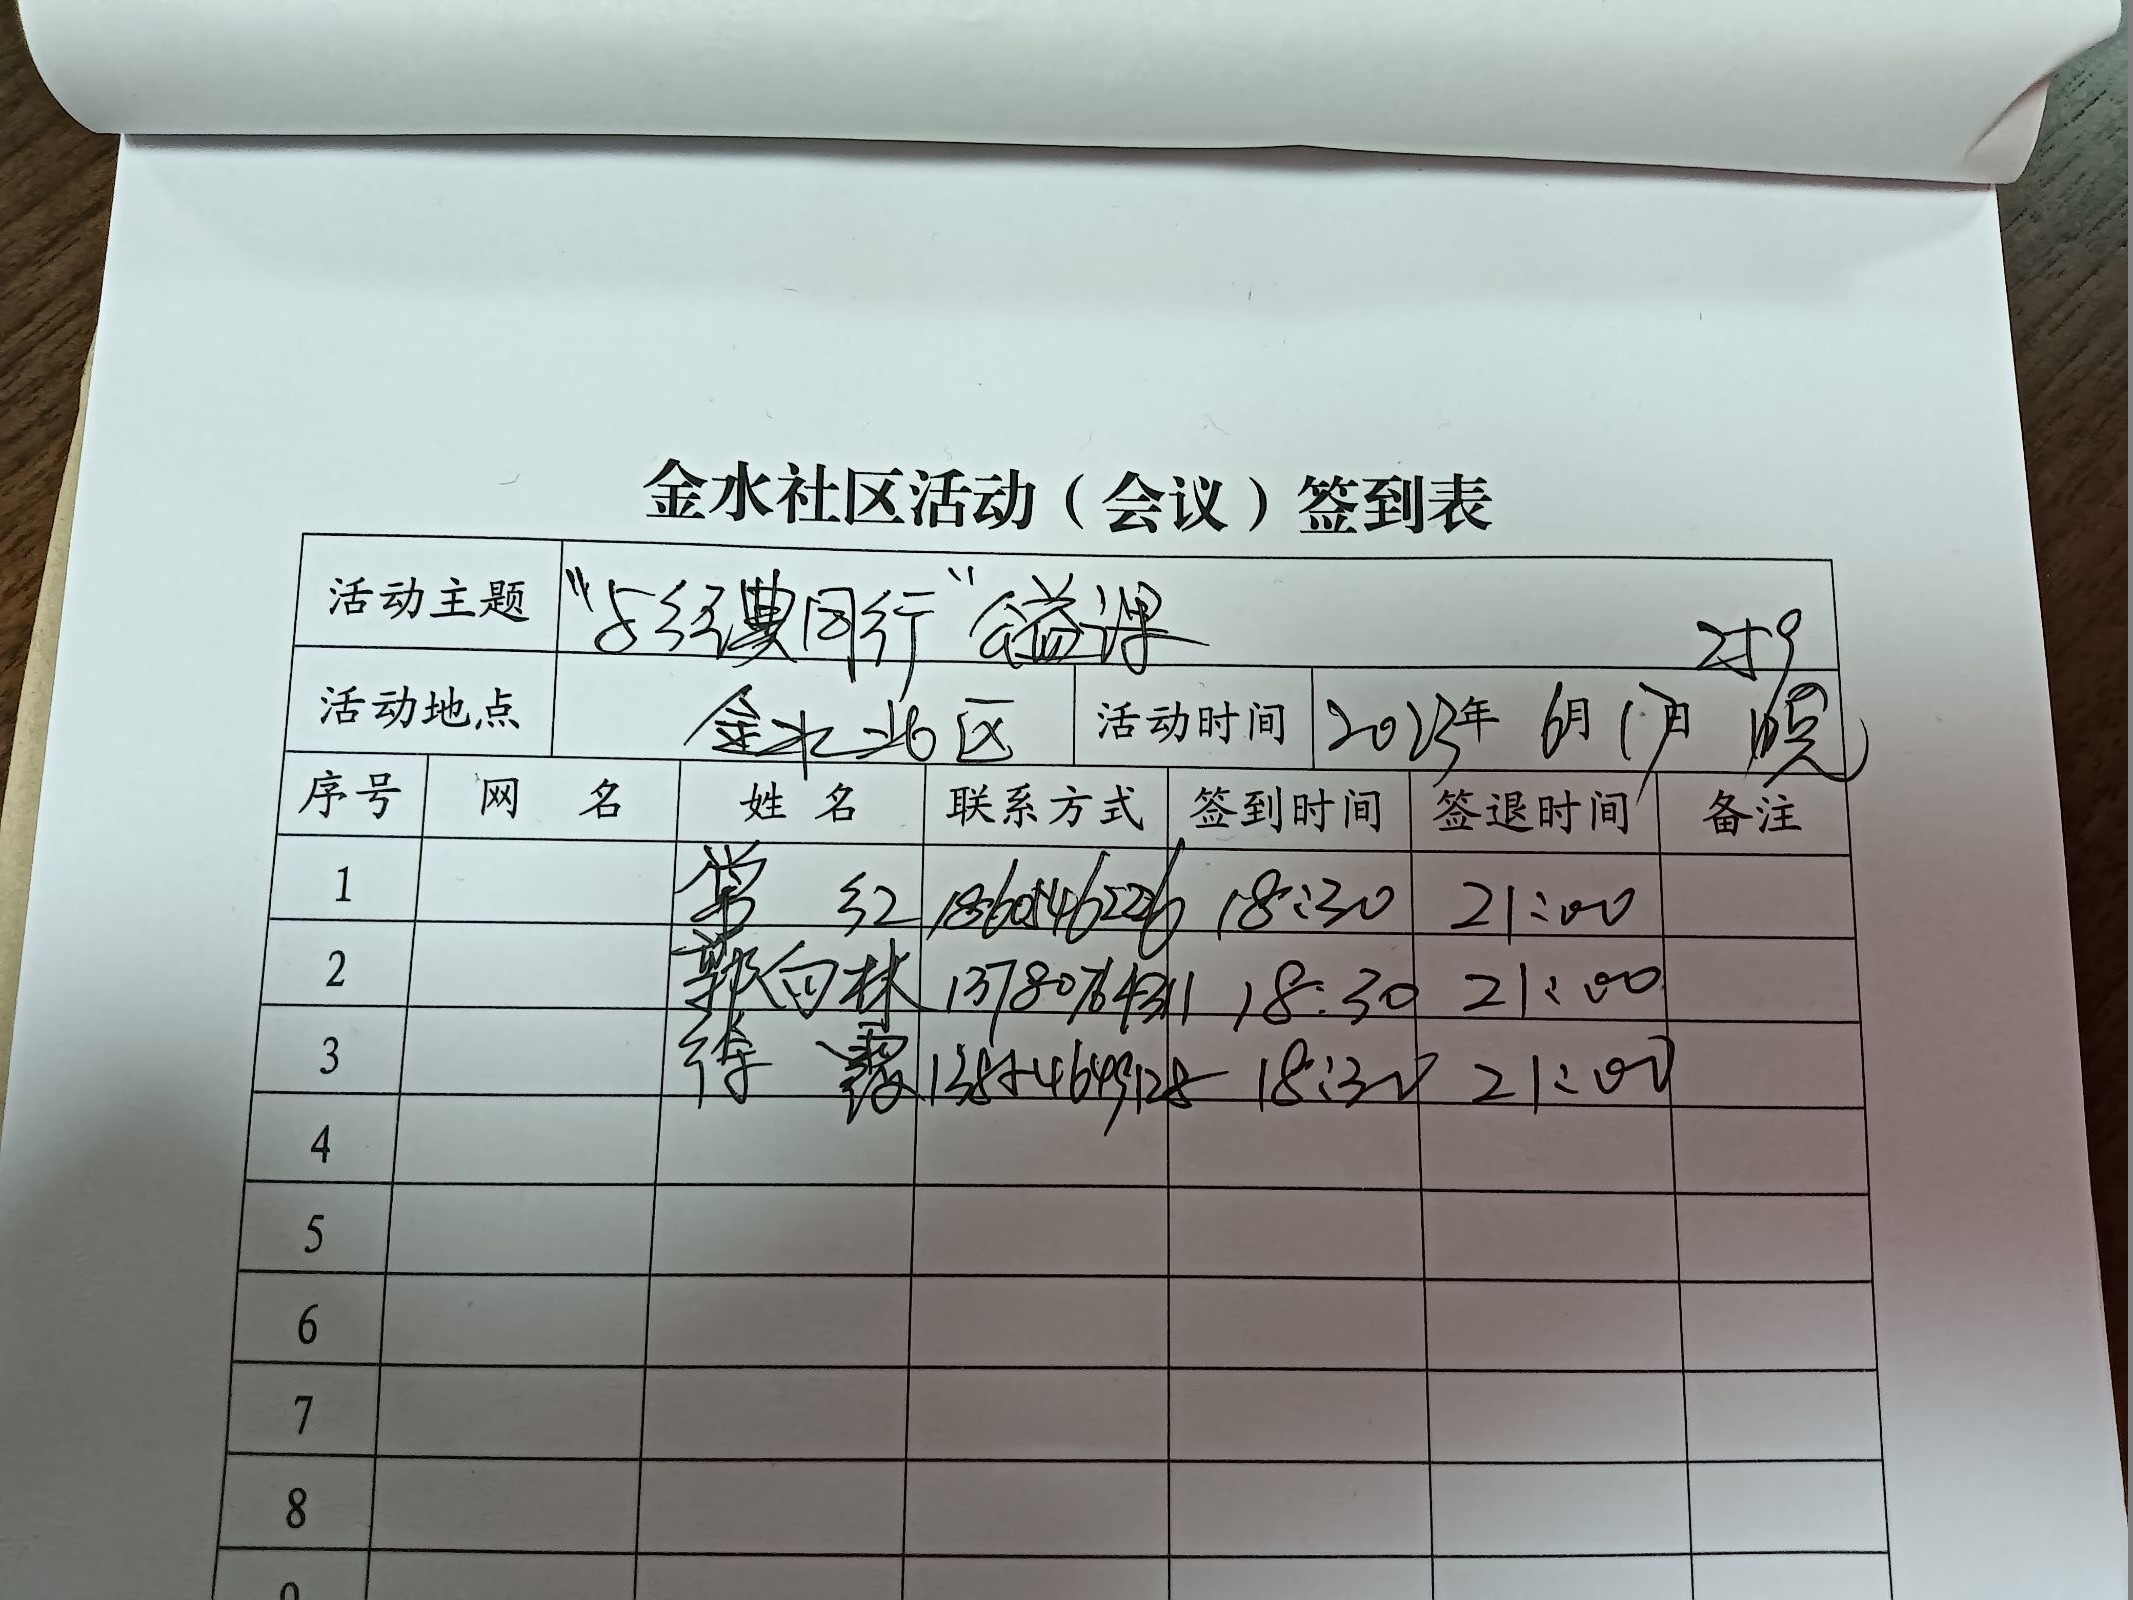 金水社区活动（会议）签到表
活动主题 "与经典同行"公益课
活动地点 金水北区 活动时间 2023年 6月17日 晚
序号 网 名 姓 名 联系方式 签到时间 签退时间 备注
1 红 18:30 21:00
2 郭向林 13780764311 18:30 21:00
3 徐霞 18:30 21:00
4
5
6
7
8